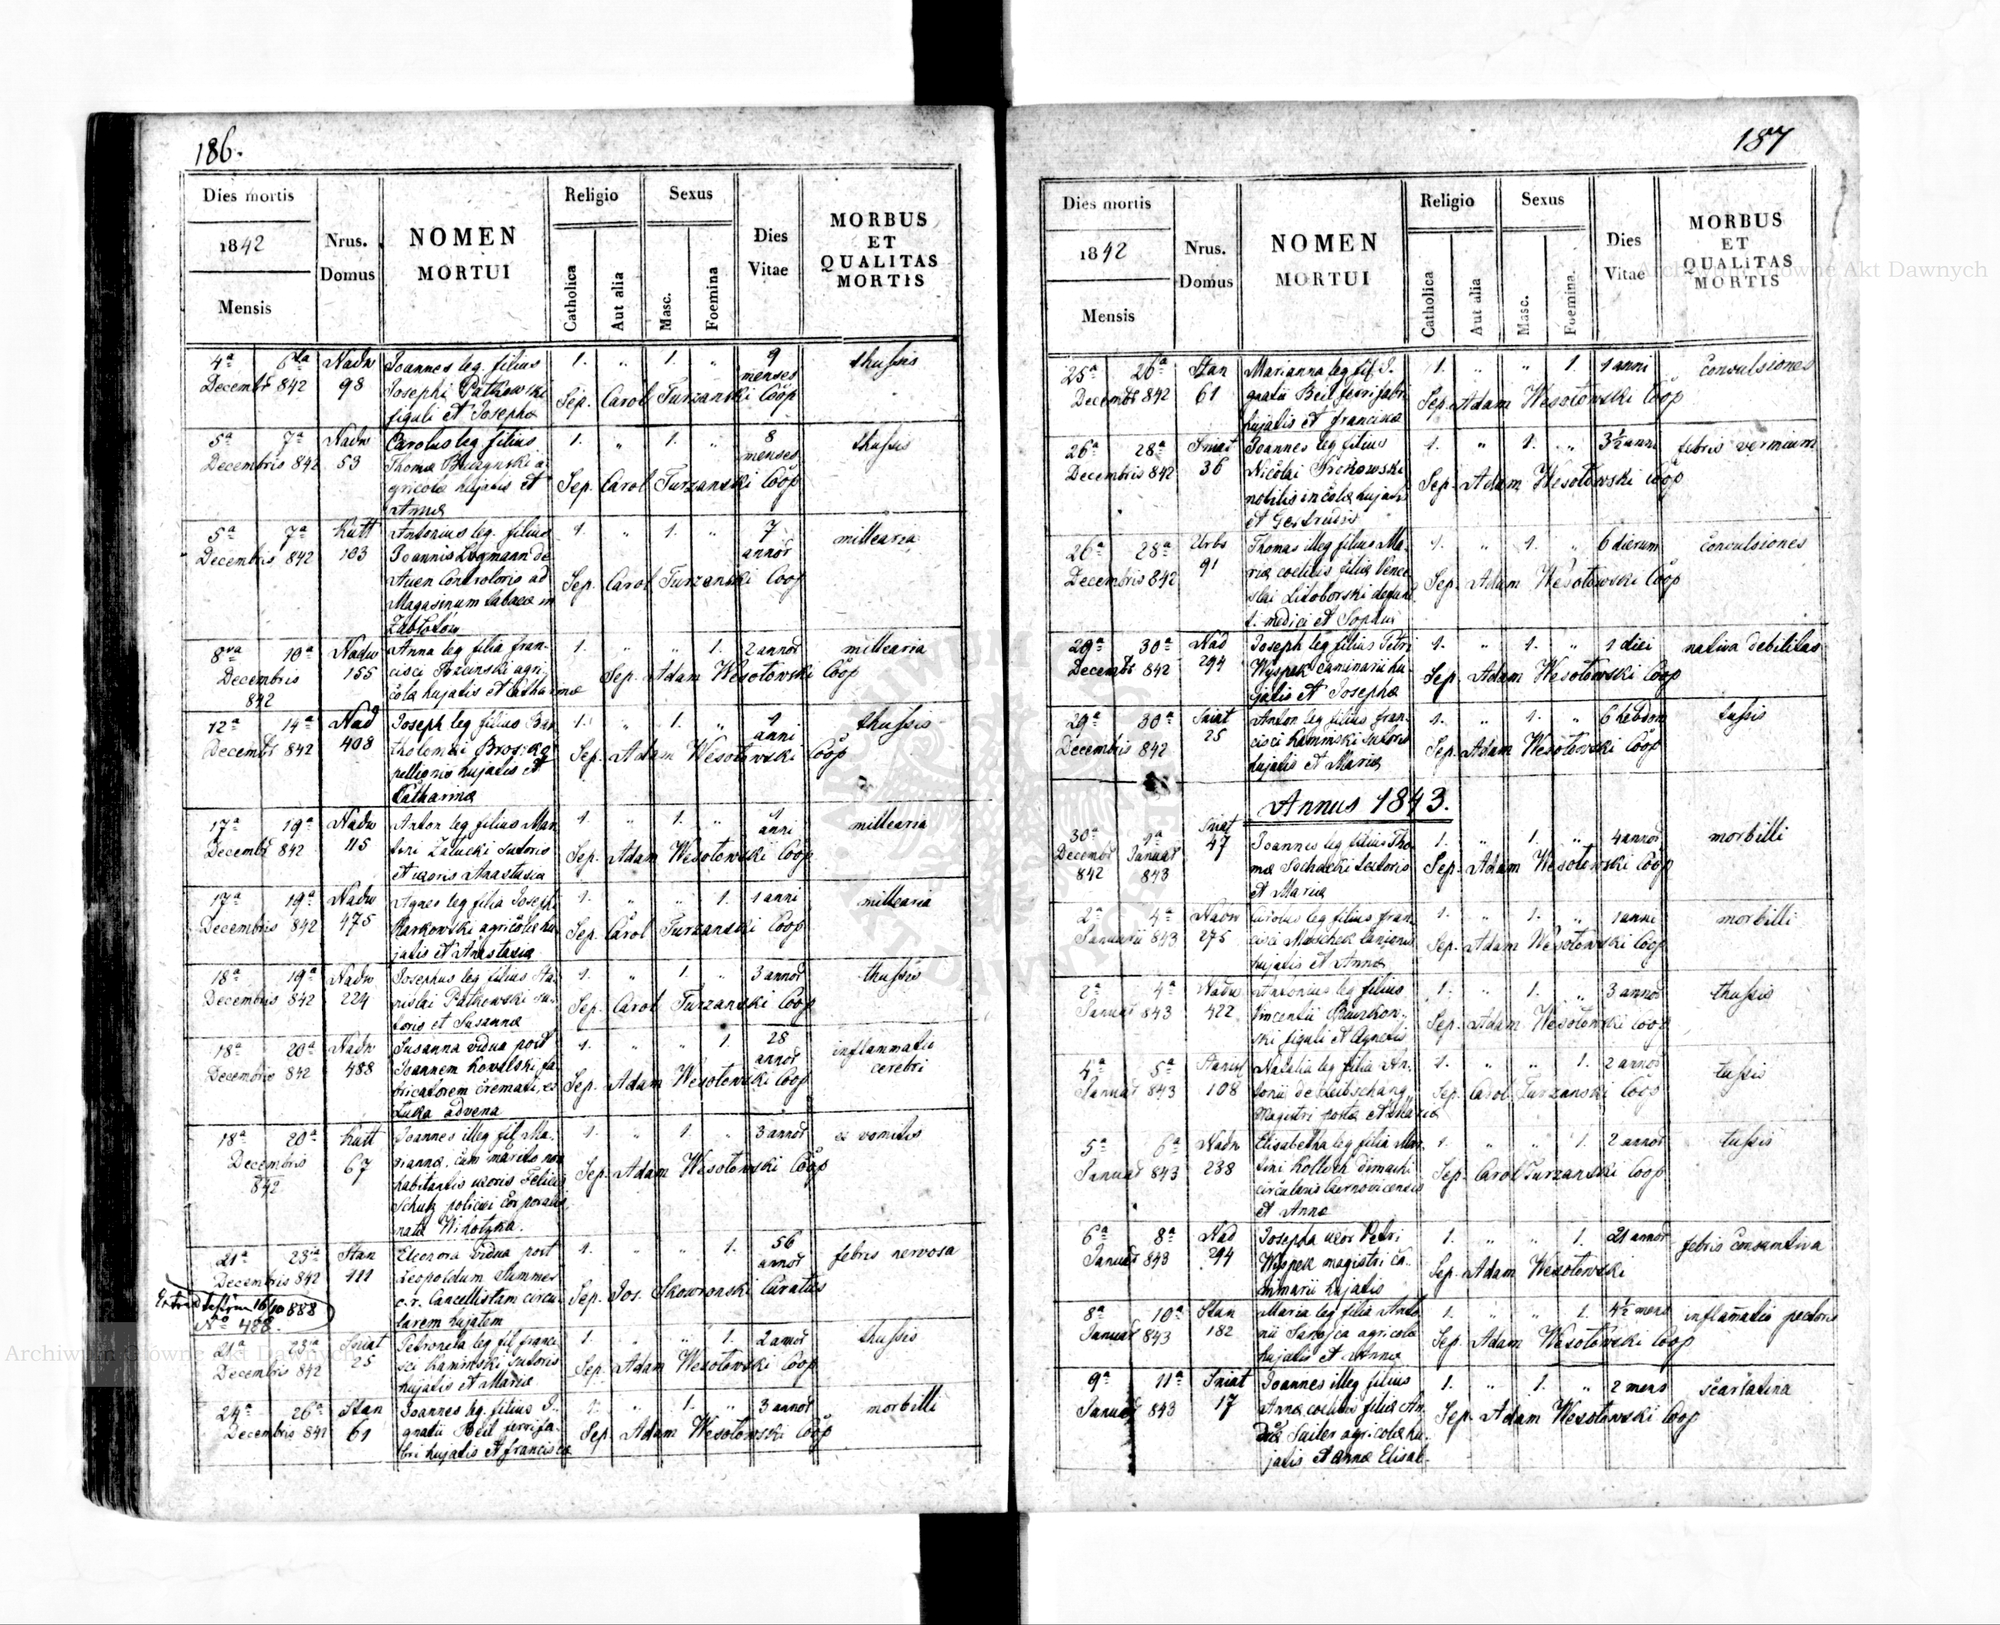 186.
Dies mortis
1842
Mensis
Nrus.
Domus
NOMEN
MORTUI
Religio
Catholica
Aut alia
Sexus
Masc.
Foemina
Dies
Vitae
MORBUS
ET
QUALITAS
MORTIS
4a 6ta Nadw Joannes leg. filius 1. " 1. " 9 thussis
Decembr 842 98 Josephi Patkowski menses
figuli et Josephæ Sep. Carol Turzanski Coop
5a 7a Nadw Carolus leg. filius 1. " 1. " 8 thussis
Decembris 842 53 Thomæ a- menses
gricolæ hujatis et Sep. Carol Turzanski Coop
Annæ
5a 7a Kutt Antonius leg. filius 1. " 1. " 7 millearia
Decembris 842 103 Joannis de annor
Auen Controloris ad Sep. Carol Turzanski Coop
Magasinum tabacæ in
Zabłotów
8va 10a Nadw Anna leg filia fran- 1. " " 1. 2 annor millearia
Decembris 155 cisci agri-
842 colæ hujatis et Catharinæ Sep. Adam Wesołowski Coop
12a 14a Nad Joseph leg filius Bar 1. " 1. " 1 thussis
Decembr 842 408 tholomei anni
pellionis hujatis et Sep. Adam Wesołowski Coop
Catharinæ
17a 19a Nadw Anton leg filius Mar 1. " 1. " 1 millearia
Decembr 842 115 tini Załucki sutoris anni
et uxoris Anastasia Sep. Adam Wesołowski Coop
17a 19a Nadw Agnes leg filia Joseph 1. " " 1. 1 anni millearia
Decembris 842 475 Karkowski agricolæ hu
jatis et Anastasia Sep. Carol Turzanski Coop
18a 19a Nadw Josephus leg filius Sta- 1. " 1. " 3 annor thussis
Decembris 842 224 nislai Patkowski su-
toris et Susannæ Sep. Carol Turzanski Coop
18a 20a Nadw Susanna vidua post 1. " " 1. 28 inflammatio
Decembris 842 488 Joannem Kowalski fa- annor cerebri
bricatorem cremati, ex Sep. Adam Wesołowski Coop
Łuka advena
18a 20a Kutt Joannes illeg fil. Ma- 1. " 1. " 3 annor ex vomitis
Decembris 67 riannæ, cum marito non
842 habitantis uxoris Felicis Sep. Adam Wesołowski Coop
Schutz policiæ corporalis
natæ
21a 23ia Stan Eleonora vidua post 1. " " 1. 56 febris nervosa
Decembris 842 111 Leopoldum Summer annor
c. r. Cancellistam circu Sep. Jos. Skowronski Curatus
larem hujatem
16/10 888
No 488.
21a 23ia Sniat Petronela leg fil franci 1. " " 1. 2 annor thussis
Decembris 842 25 sci Kaminski sutoris
hujatis et Mariæ Sep. Adam Wesołowski Coop
24a 26a Stan Joannes leg. filius I- 1. " 1. " 3 annor morbilli
Decembris 842 61 gnatii Beil ferrifa-
bri hujatis et francisca Sep. Adam Wesołowski Coop
187
Dies mortis
1842
Mensis
Nrus.
Domus
NOMEN
MORTUI
Religio
Catholica
Aut alia
Sexus
Masc.
Foemina.
Dies
Vitae
MORBUS
ET
QUALITAS
MORTIS
25a 26a Stan Marianna leg fil. I- 1. " " 1. 1 anni convulsiones
Decembr 842 61 gnatii Beil ferrifabri
hujatis et francisca Sep. Adam Wesołowski Coop
26a 28a Sniat Joannes leg filius 1. " 1. " 3½ anni febris vermium
Decembris 842 36 Nicolai
nobilis incolæ hujatis Sep. Adam Wesołowski Coop
et Gertrudis
26a 28a Urbs Thomas illeg filius Ma- 1. " 1. " 6 dierum convulsiones
Decembris 842 91 riæ coelibis filiæ Vence
slai Litoborski defunc Sep. Adam Wesołowski Coop
t. medici et Sophiæ
29a 30a Nad Joseph leg filius Petri 1. " 1. " 1 diei nativa debilitas
Decembr 842 294 Wyspek caminarii hu-
jatis et Josephæ Sep. Adam Wesołowski Coop
29a 30a Sniat Anton leg filius fran- 1. " 1. " 6 hebdom tussis
Decembris 842 25 cisci Kaminski sutoris
hujatis et Mariæ Sep. Adam Wesołowski Coop
Annus 1843.
30a 1a Sniat Joannes leg filius Tho 1. " 1. " 4 annor morbilli
Decembr Januar 47 mæ Sochacki sutoris
842 843 et Mariæ Sep. Adam Wesołowski Coop
2a 4a Nadw Carolus leg filius fran 1. " 1. " 1 anni morbilli
Januarii 843 275 cisci Maschek lanionis
hujatis et Annæ Sep. Adam Wesołowski Coop
2a 4a Nadw Antonius leg filius 1. " 1. " 3 annor thussis
Januar 843 422 Vincentii
ski figuli et Agnetis Sep. Adam Wesołowski Coop
4a 5a Stanisl Natalia leg filia An- 1. " " 1. 2 annor tussis
Januar 843 108 tonii de
magistri postæ et Mariæ Sep. Carol Turzanski Coop
5a 6a Nadw Elisabetha leg filia Mar 1. " " 1. 2 annor tussis
Januar 843 238 tini
circularis Czernovicensis Sep. Carol Turzanski Coop
et Annæ
6a 8a Nad Josepha uxor Petri 1. " " 1. 21 annor febris consumtiva
Januar 843 294 Wyspek magistri ca-
minarii hujatis Sep. Adam Wesołowski
8a 10a Stan Maria leg filia Anto 1. " " 1. 4½ mens inflamatio pectoris
Januar 843 182 nii Sanojca agricolæ
hujatis et Annæ Sep. Adam Wesołowski Coop
9a 11a Sniat Joannes illeg filius 1. " 1. " 2 mens scarlatina
Januar 843 17 Annæ coelibis filiæ An
dreæ Sailer agricolæ hu- Sep. Adam Wesołowski Coop
jatis et Annæ Elisab.
Archiwum Główne Akt Dawnych
Archiwum Główne Akt Dawnych
ARCHIWUM GŁÓWNE AKT DAWNYCH